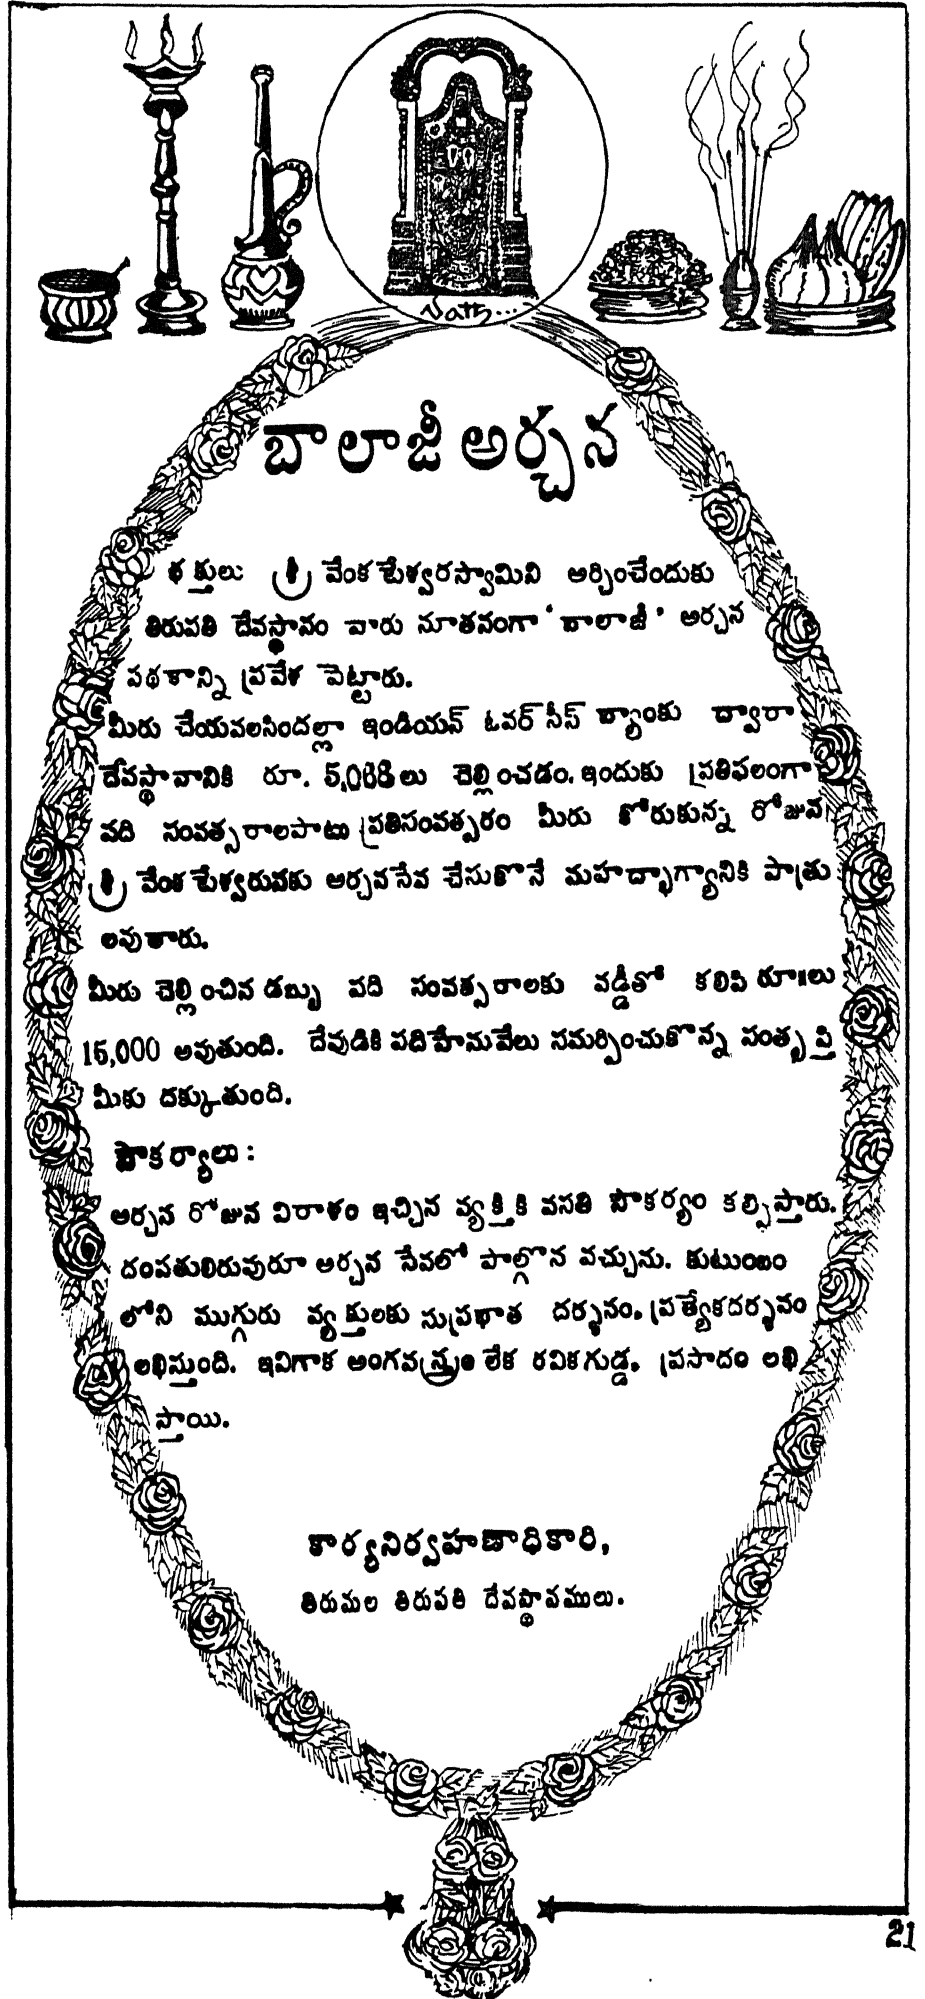 Nath...
బాలాజీ అర్చన
భక్తులు శ్రీ వేంకటేశ్వరస్వామిని అర్చించేందుకు
తిరుపతి దేవస్థానం వారు నూతనంగా ‘బాలాజీ’ అర్చన
పథకాన్ని ప్రవేశ పెట్టారు.
మీరు చేయవలసిందల్లా ఇండియన్ ఓవర్ సీస్ బ్యాంకు ద్వారా
దేవస్థానానికి రూ. లు చెల్లించడం. ఇందుకు ప్రతిఫలంగా
పది సంవత్సరాలపాటు ప్రతిసంవత్సరం మీరు కోరుకున్న రోజున
శ్రీ వేంకటేశ్వరునకు అర్చనసేవ చేసుకొనే మహద్భాగ్యానికి పాత్రు
లవుతారు.
మీరు చెల్లించిన డబ్బు పది సంవత్సరాలకు వడ్డీతో కలిపి రూ॥లు
15,000 అవుతుంది. దేవుడికి పదిహేనువేలు సమర్పించుకొన్న సంతృప్తి
మీకు దక్కుతుంది.
సౌకర్యాలు :
అర్చన రోజున విరాళం ఇచ్చిన వ్యక్తికి వసతి సౌకర్యం కల్పిస్తారు.
దంపతులిరువురూ అర్చన సేవలో పాల్గొన వచ్చును. కుటుంబం
లోని ముగ్గురు వ్యక్తులకు సుప్రభాత దర్శనం. ప్రత్యేకదర్శనం
లభిస్తుంది. ఇవిగాక అంగవస్త్రం లేక రవికగుడ్డ. ప్రసాదం లభి
స్తాయి.
కార్యనిర్వహణాధికారి,
తిరుమల తిరుపతి దేవస్థానములు.
21